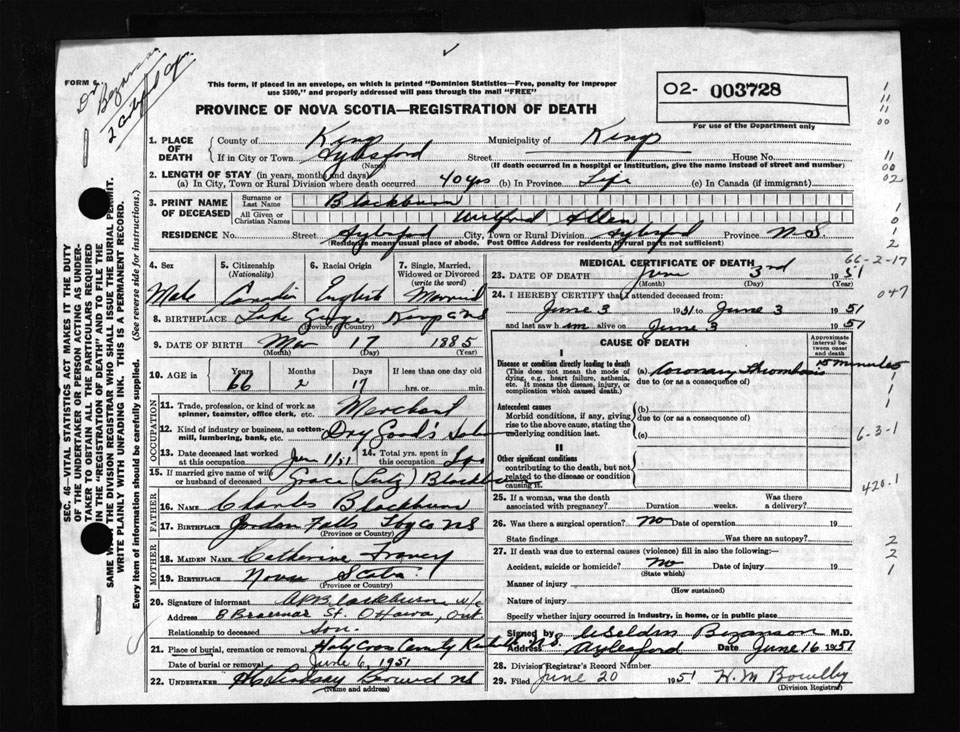 FORM 6.
Dr. Bezanson
2 Certified Cop.
This form, if placed in an envelope, on which is printed "Dominion Statistics—Free, penalty for improper
use $300," and properly addressed will pass through the mail "FREE"
PROVINCE OF NOVA SCOTIA—REGISTRATION OF DEATH
O2- 003728
For use of the Department only
1. PLACE OF DEATH County of Kings Municipality of Kings
If in City or Town Aylesford Street House No.
(Name) (If death occurred in a hospital or institution, give the name instead of street and number)
2. LENGTH OF STAY (in years, months and days)
(a) In City, Town or Rural Division where death occurred 40 yrs (b) In Province Life (c) In Canada (if immigrant)
3. PRINT NAME OF DECEASED Surname or Last Name Blackburn
All Given or Christian Names Wilford Allen
RESIDENCE No. Street Aylesford City, Town or Rural Division Aylesford Province N S
(Residence means usual place of abode. Post Office Address for residents in rural parts not sufficient)
4. Sex Male
5. Citizenship (Nationality) Canadian
6. Racial Origin English
7. Single, Married, Widowed or Divorced (write the word) Married
8. BIRTHPLACE Lake George Kings Co NS
(Province or Country)
9. DATE OF BIRTH Mar 17 1885
(Month) (Day) (Year)
10. AGE in Years 66 Months 2 Days 17 If less than one day old hrs. or min.
OCCUPATION
11. Trade, profession, or kind of work as spinner, teamster, office clerk, etc. Merchant
12. Kind of industry or business, as cotton-mill, lumbering, bank, etc. Dry Good's
13. Date deceased last worked at this occupation June 1/51 14. Total yrs. spent in this occupation
15. If married give name of wife or husband of deceased Grace (Lutz) Blackburn
FATHER
16. NAME Charles Blackburn
17. BIRTHPLACE Jordan Falls NS
(Province or Country)
MOTHER
18. MAIDEN NAME Catherine
19. BIRTHPLACE Nova Scotia
(Province or Country)
20. Signature of informant Blackburn
Address 8 Braemar St. Ottawa, Ont.
Relationship to deceased Son.
21. Place of burial, cremation or removal Holy Cross Kentville N.S.
Date of burial or removal June 6, 1951
22. UNDERTAKER Lindsay Berwick NS
(Name and address)
MEDICAL CERTIFICATE OF DEATH
66-2-17
23. DATE OF DEATH June 3rd 1951
(Month) (Day) (Year)
24. I HEREBY CERTIFY that I attended deceased from
June 3 1951 to June 3 1951
and last saw him alive on June 3 1951
047
CAUSE OF DEATH
Approximate interval between onset and death
I
Disease or condition directly leading to death
(This does not mean the mode of dying, e.g., heart failure, asthenia, etc. It means the disease, injury, or complication which caused death.)
(a) Coronary Thrombosis 15 minutes
due to (or as a consequence of)
Antecedent causes
Morbid conditions, if any, giving rise to the above cause, stating the underlying condition last.
(b)
due to (or as a consequence of)
(c)
6-3-1
II
Other significant conditions
contributing to the death, but not related to the disease or condition causing it.
420-1
25. If a woman, was the death associated with pregnancy? Duration weeks. Was there a delivery?
26. Was there a surgical operation? No Date of operation 19
State findings Was there an autopsy?
27. If death was due to external causes (violence) fill in also the following:—
Accident, suicide or homicide? No Date of injury 19
(State which)
Manner of injury
(How sustained)
Nature of injury
Specify whether injury occurred in industry, in home, or in public place
Signed by Weldon Bezanson M.D.
Address Aylesford Date June 16 1951
28. Division Registrar's Record Number
29. Filed June 20 1951 H. M Bowlby
(Division Registrar)
SEC. 46—VITAL STATISTICS ACT MAKES IT THE DUTY
OF THE UNDERTAKER OR PERSON ACTING AS UNDER-
TAKER TO OBTAIN ALL THE PARTICULARS REQUIRED
IN THE "REGISTRATION OF DEATH" AND TO FILE THE
SAME WITH THE DIVISION REGISTRAR WHO SHALL ISSUE THE BURIAL PERMIT.
WRITE PLAINLY WITH UNFADING INK. THIS IS A PERMANENT RECORD.
Every item of information should be carefully supplied. (See reverse side for instructions.)